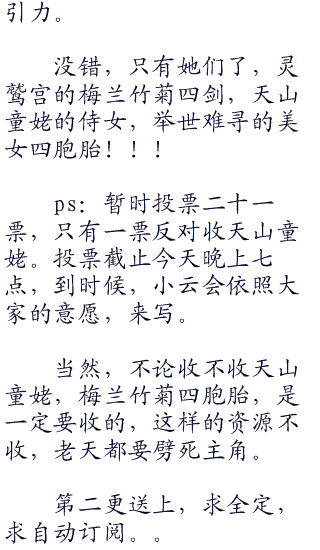 引力。
没错，只有她们了，灵
鹫宫的梅兰竹菊四剑，天山
童姥的侍女，举世难寻的美
女四胞胎！！！
ps：暂时投票二十一
票，只有一票反对收天山童
姥。投票截止今天晚上七
点，到时候，小云会依照大
家的意愿，来写。
当然，不论收不收天山
童姥，梅兰竹菊四胞胎，是
一定要收的，这样的资源不
收，老天都要劈死主角。
第二更送上，求全定，
求自动订阅。。